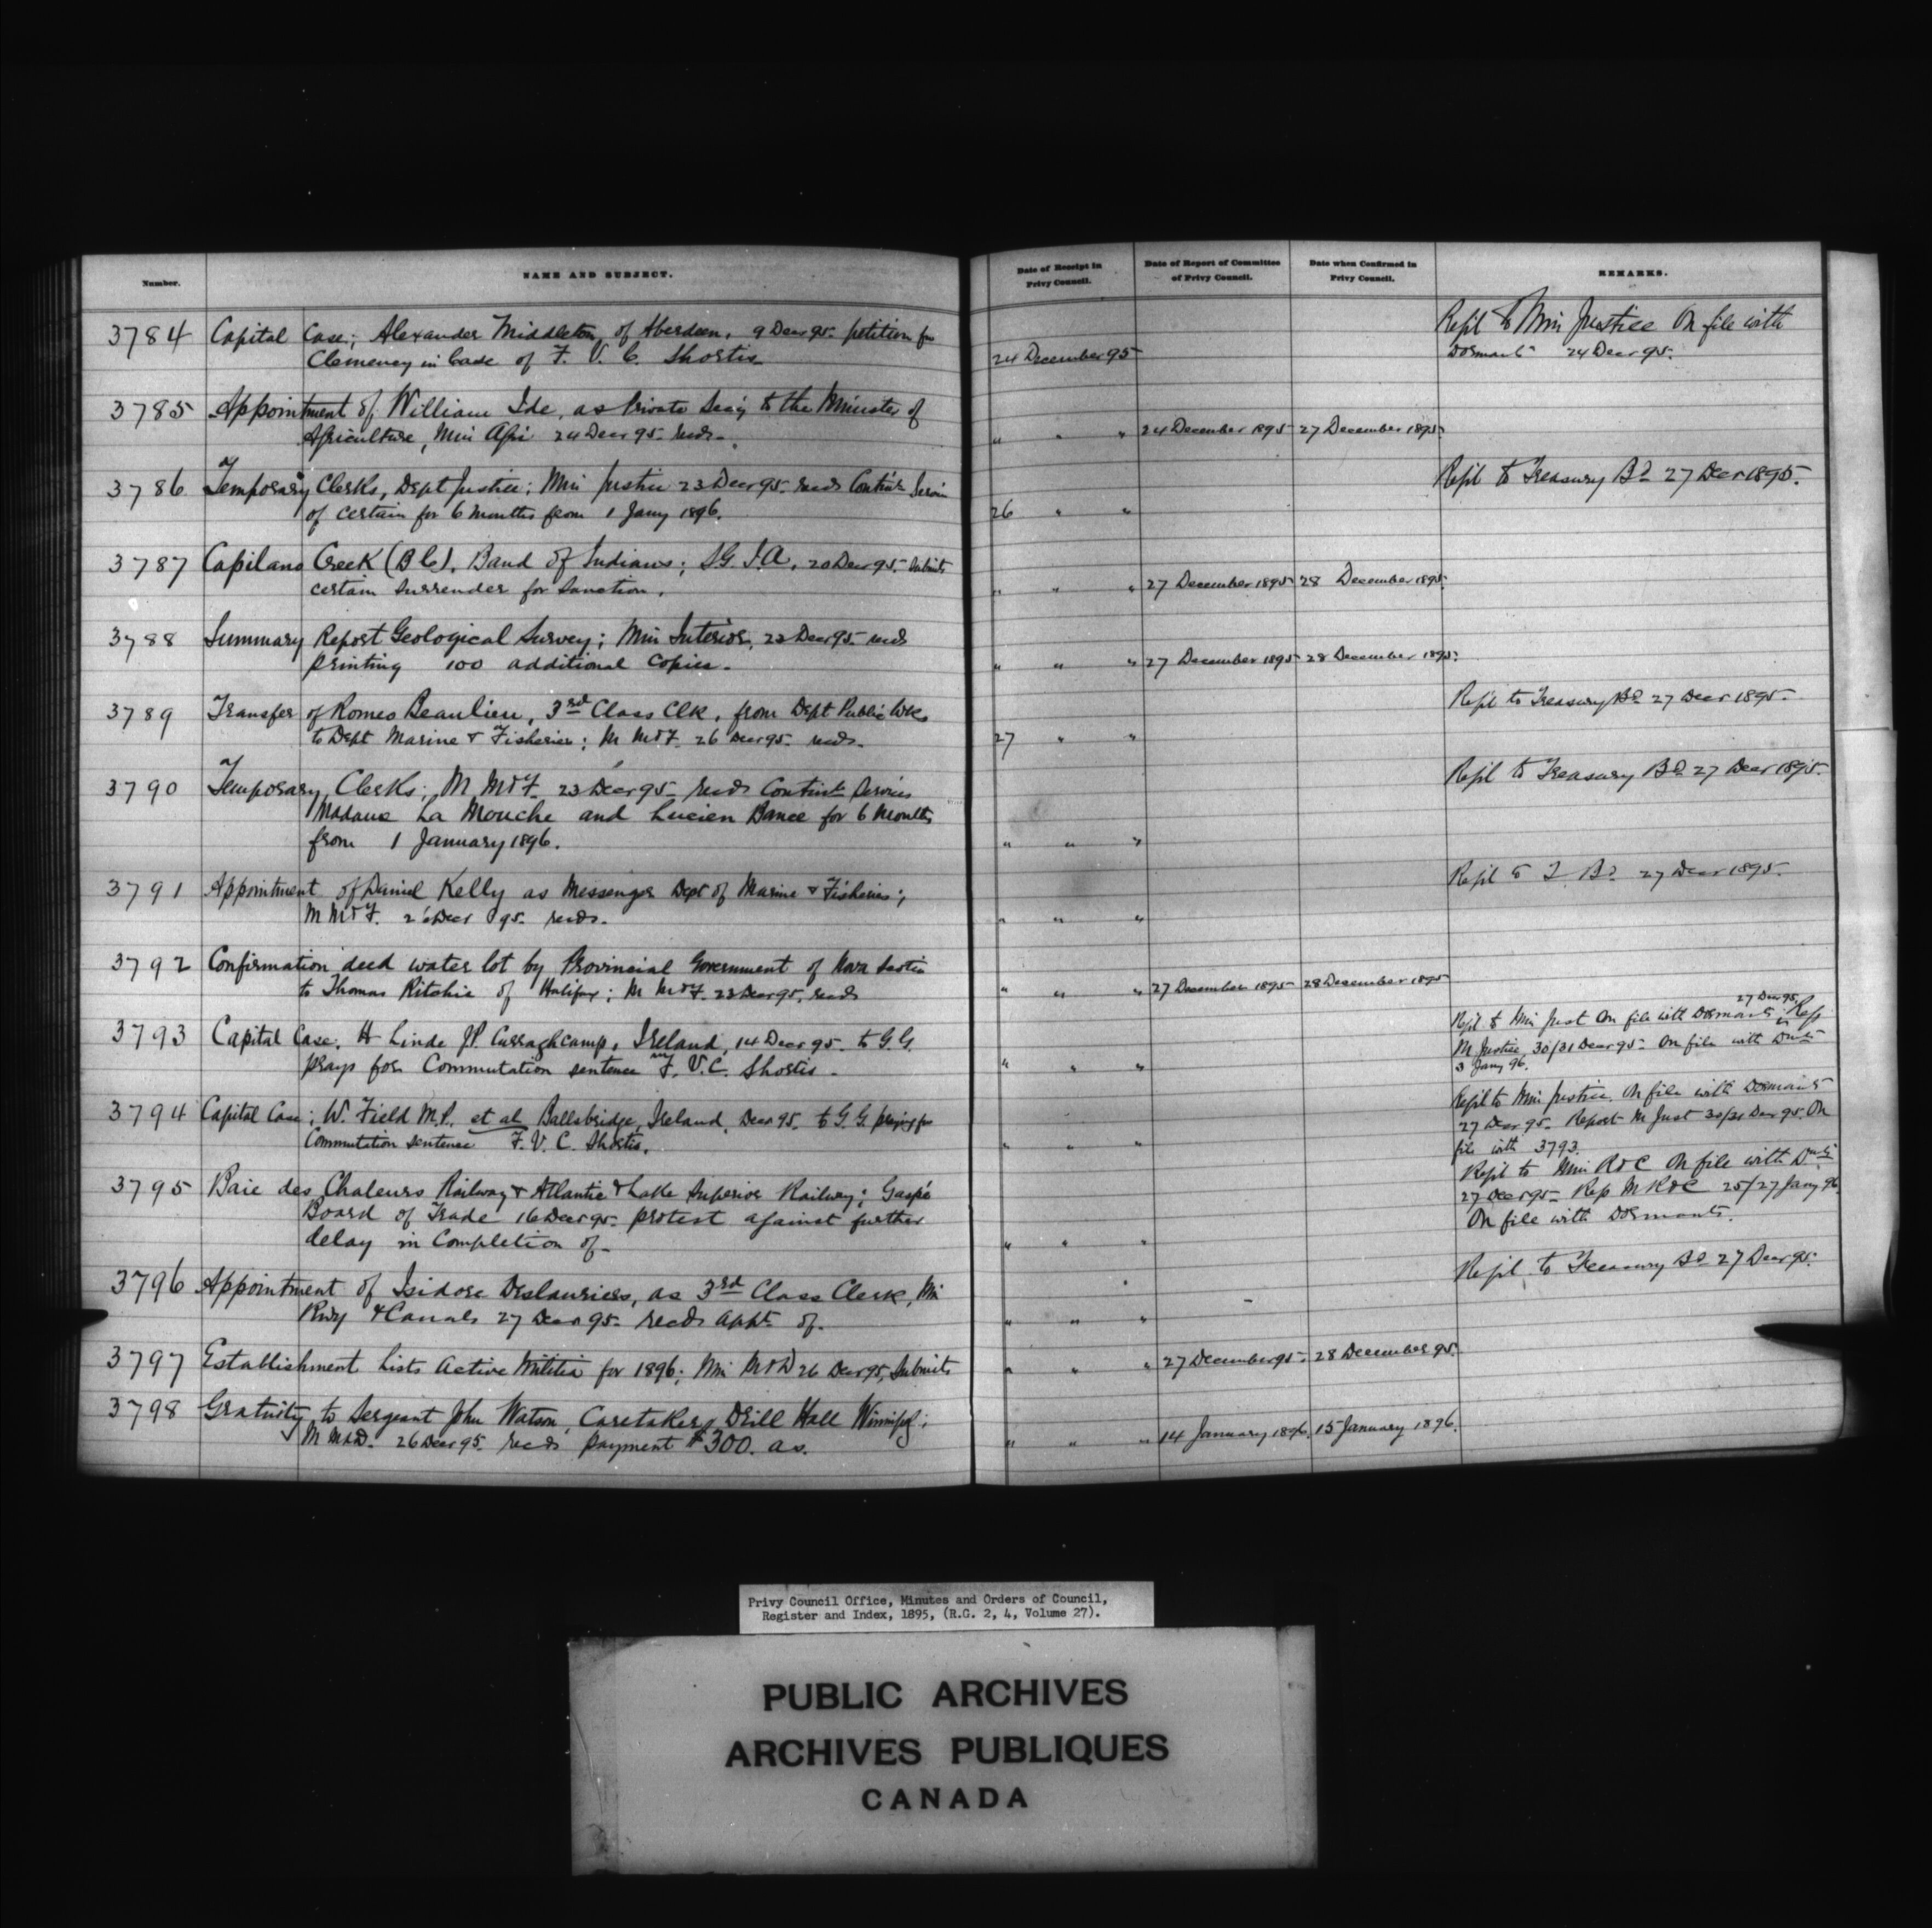 Number.
NAME AND SUBJECT.
Date of Receipt in Privy Council.
Date of Report of Committee of Privy Council.
Date when Confirmed in Privy Council.
REMARKS.
3784 Capital Case; Alexander Middleton, of Aberdeen, 9 Decr 95 petition for
Clemency in Case of F. V. C. Shortis
24 December 95
Refd to Min Justice On file with
Dormants 24 Decr 95.
3785 Appointment of William Ide, as Private Secy to the Minister of
Agriculture, Min Agri 24 Decr 95 recds.
" " " 24 December 1895 27 December 1895
3786 Temporary Clerks, Dept Justice; Min Justice 23 Decr 95 recds Contince Service
of certain for 6 months from 1 Jany 1896.
26 " "
Refd to Treasury Bd 27 Decr 1895.
3787 Capilano Creek (B C), Band of Indians; S.G. I.A. 20 Decr 95 submits
certain surrender for sanction.
" " " 27 December 1895 28 December 1895
3788 Summary Report Geological Survey; Min Interior, 23 Decr 95 recds
printing 100 additional copies.
" " " 27 December 1895 28 December 1895
3789 Transfer of Romeo Beaulieu, 3rd Class Clk, from Dept Public Wks
to Dept Marine & Fisheries; M M&F. 26 Decr 95 recds.
27 " "
Refd to Treasury Bd 27 Decr 1895
3790 Temporary Clerks; M M&F 23 Decr 95 recds Contince Services
Madame La Mouche and Lucien Bance for 6 Months
from 1 January 1896.
" " "
Refd to Treasury Bd 27 Decr 1895
3791 Appointment of Daniel Kelly as Messenger Dept of Marine & Fisheries;
M M&F. 26 Decr 95 recds.
" " "
Refd to T. Bd 27 Decr 1895
3792 Confirmation deed water lot by Provincial Government of Nova Scotia
to Thomas Ritchie of Halifax; M M&F. 23 Decr 95, recds
" " " 27 December 1895 28 December 1895
3793 Capital Case; H Linde J.P. Curraghcamp, Ireland, 14 Decr 95 to G.G.
prays for Commutation sentence on F. V. C. Shortis.
" " "
27 Decr 95.
Refd to Min Just On file with Dormants Rep
M Justice 30/31 Decr 95 On file with Dmts
3 Jany 96.
3794 Capital Case; W. Field M.P. et al Ballsbridge, Ireland, Decr 95 to G.G. praying for
Commutation sentence F. V. C. Shortis.
" " "
Refd to Min Justice. On file with Dormants
27 Decr 95 Report M Just 30/31 Dec 95. On
file with 3793.
3795 Baie des Chaleurs Railway & Atlantic & Lake Superior Railway; Gaspé
Board of Trade 16 Decr 95 protest against further
delay in Completion of
" " "
Refd to Min R&C On file with Dmts
27 Decr 95 Rep M R&C 25/27 Jany 96
On file with Dormants.
3796 Appointment of Isidore Deslauriers, as 3rd Class Clerk, Min
Rwy & Canals 27 Decr 95 recds appt of.
" " "
Refd to Treasury Bd 27 Decr 95.
3797 Establishment Lists Active Militia for 1896; Min M&D 26 Decr 95, Submits
" " " 27 December 95. 28 December 95.
3798 Gratuity to Sergeant John Watson, Caretaker, Drill Hall Winnipeg;
M M&D. 26 Decr 95 recds payment $300. as.
" " " 14 January 1896. 15 January 1896.
Privy Council Office, Minutes and Orders of Council,
Register and Index, 1895, (R.G. 2, 4, Volume 27).
PUBLIC ARCHIVES
ARCHIVES PUBLIQUES
CANADA